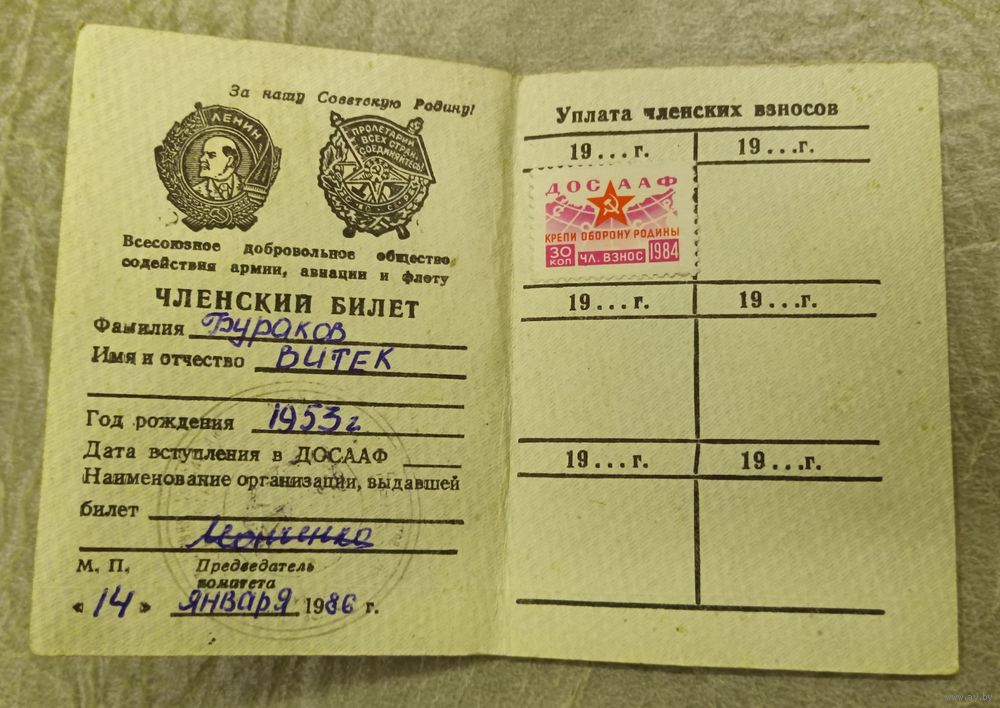 За нашу Советскую Родину!
ЛЕНИН
ПРОЛЕТАРИИ
ВСЕХ СТРАН,
СОЕДИНЯЙТЕСЬ!
Всесоюзное добровольное общество
содействия армии, авиации и флоту
ЧЛЕНСКИЙ БИЛЕТ
Фамилия Бураков
Имя и отчество ВИТЕК
Год рождения 1953 г.
Дата вступления в ДОСААФ
Наименование организации, выдавшей
билет
М. П. Председатель
комитета
« 14 » января 1986 г.
Уплата членских взносов
19...г. 19...г.
ДОСААФ
КРЕПИ ОБОРОНУ РОДИНЫ
30 КОП ЧЛ. ВЗНОС 1984
19...г. 19...г.
19...г. 19...г.
www.ay.by